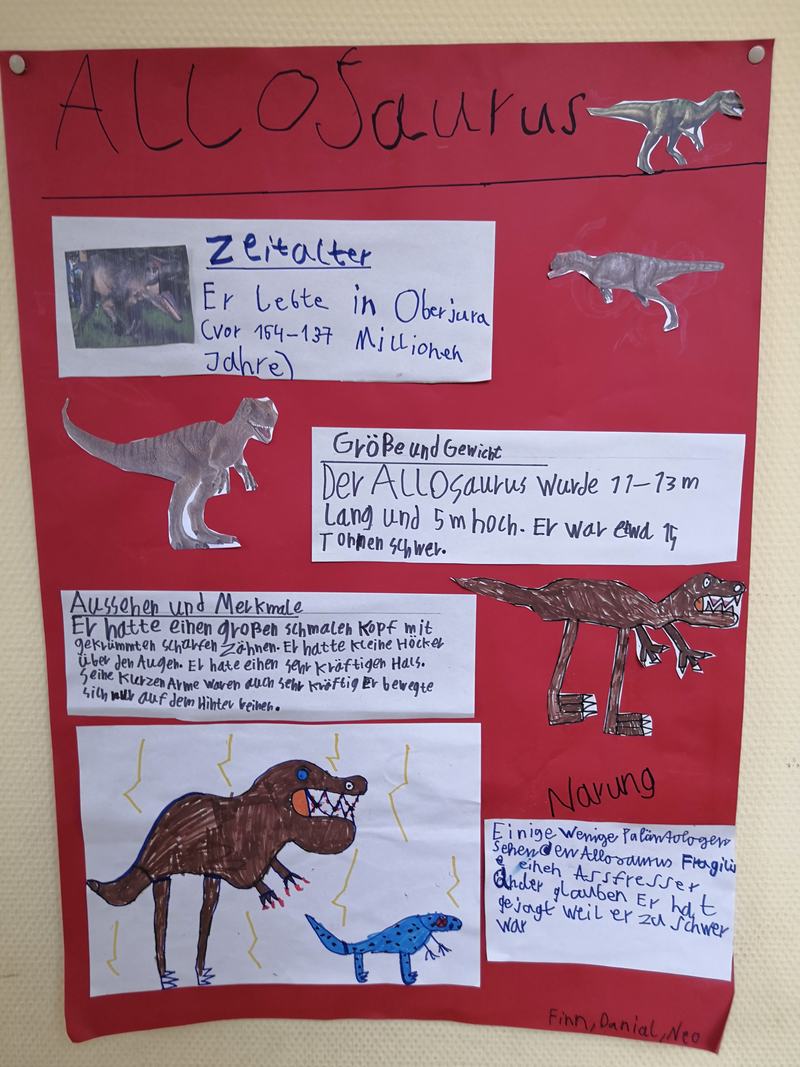 ALLOSaurus
Zeitalter
Er lebte in Oberjura
(vor 154-137 Millionen
Jahre)
Größe und Gewicht
Der ALLOsaurus wurde 11-13m
Lang und 5m hoch. Er war etwa 15
Tonnen schwer.
Aussehen und Merkmale
Er hatte einen großen schmalen Kopf mit
gekrümmten scharfen Zähnen. Er hatte kleine Höcker
über den Augen. Er hate einen sehr kräftigen Hals.
Seine kurzen Arme waren auch sehr kräftig Er bewegte
sich nur auf dem Hinter beinen.
Narung
Einige wenige Paläntologen
sehen den Allosaurus Fragilis
einen Assfresser
ander glauben Er hat
gejagt weil er zu schwer
war
Finn, Danial, Neo